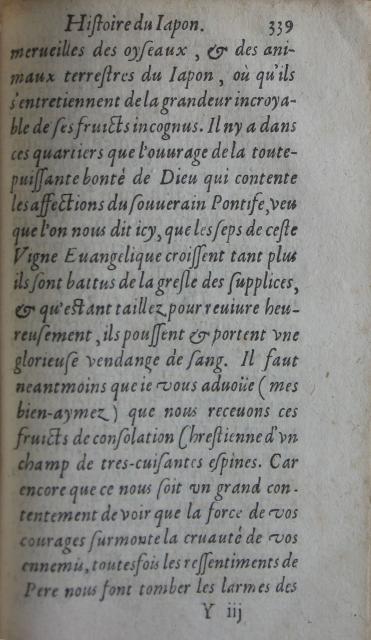 Hiſtoire du Iapon. 339
merueilles des oyſeaux, & des ani-
maux terreſtres du Iapon, où qu'ils
s'entretiennent de la grandeur incroya-
ble de ſes fruicts incognus. Il ny a dans
ces quartiers que l'ouurage de la toute-
puiſſante bonté de Dieu qui contente
les affections du ſouuerain Pontife, veu
que l'on nous dit icy, que les ſeps de ceſte
Vigne Euangelique croiſſent tant plus
ils ſont battus de la greſle des ſupplices,
& qu'eſtant taillez pour reuiure heu-
reuſement, ils pouſſent & portent vne
glorieuſe vendange de ſang. Il faut
neantmoins que ie vous aduoüe (mes
bien-aymez) que nous receuons ces
fruicts de conſolation Chreſtienne d'vn
champ de tres-cuiſantes eſpines. Car
encore que ce nous ſoit vn grand con-
tentement de voir que la force de vos
courages ſurmonte la cruauté de vos
ennemis, toutesfois les reſſentiments de
Pere nous font tomber les larmes des
Y iij